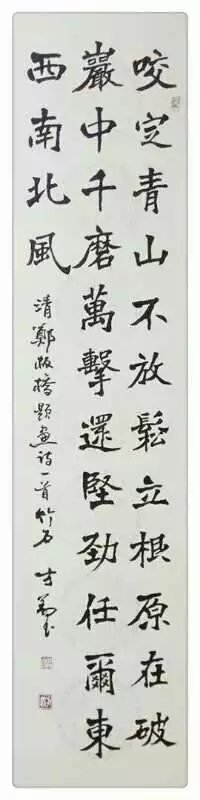 咬定青山不放鬆立根原在破
巖中千磨萬擊還堅勁任爾東
西南北風
清鄭板橋題畫詩一首竹石